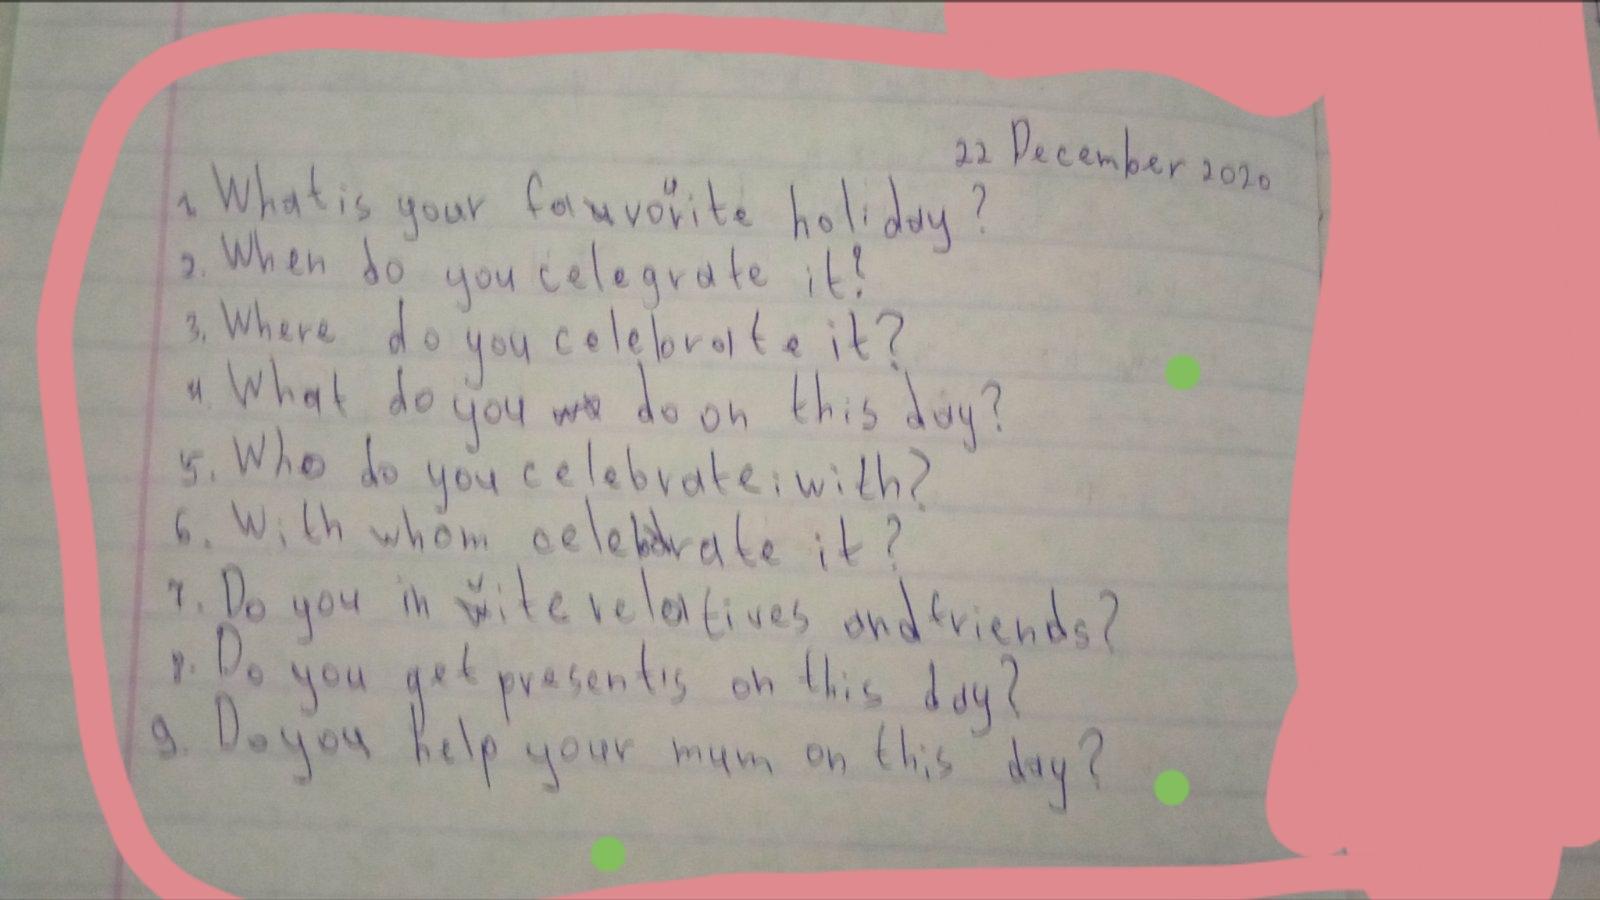 22 December 2020
1. What is your fauvourite holiday?
2. When do you celegrate it?
3. Where do you celebrate it?
4. What do you do on this day?
5. Who do you celebrate i with?
6. With whom celebrate it?
7. Do you invite relatives and friends?
8. Do you get presents on this day?
9. Do you help your mum on this day?